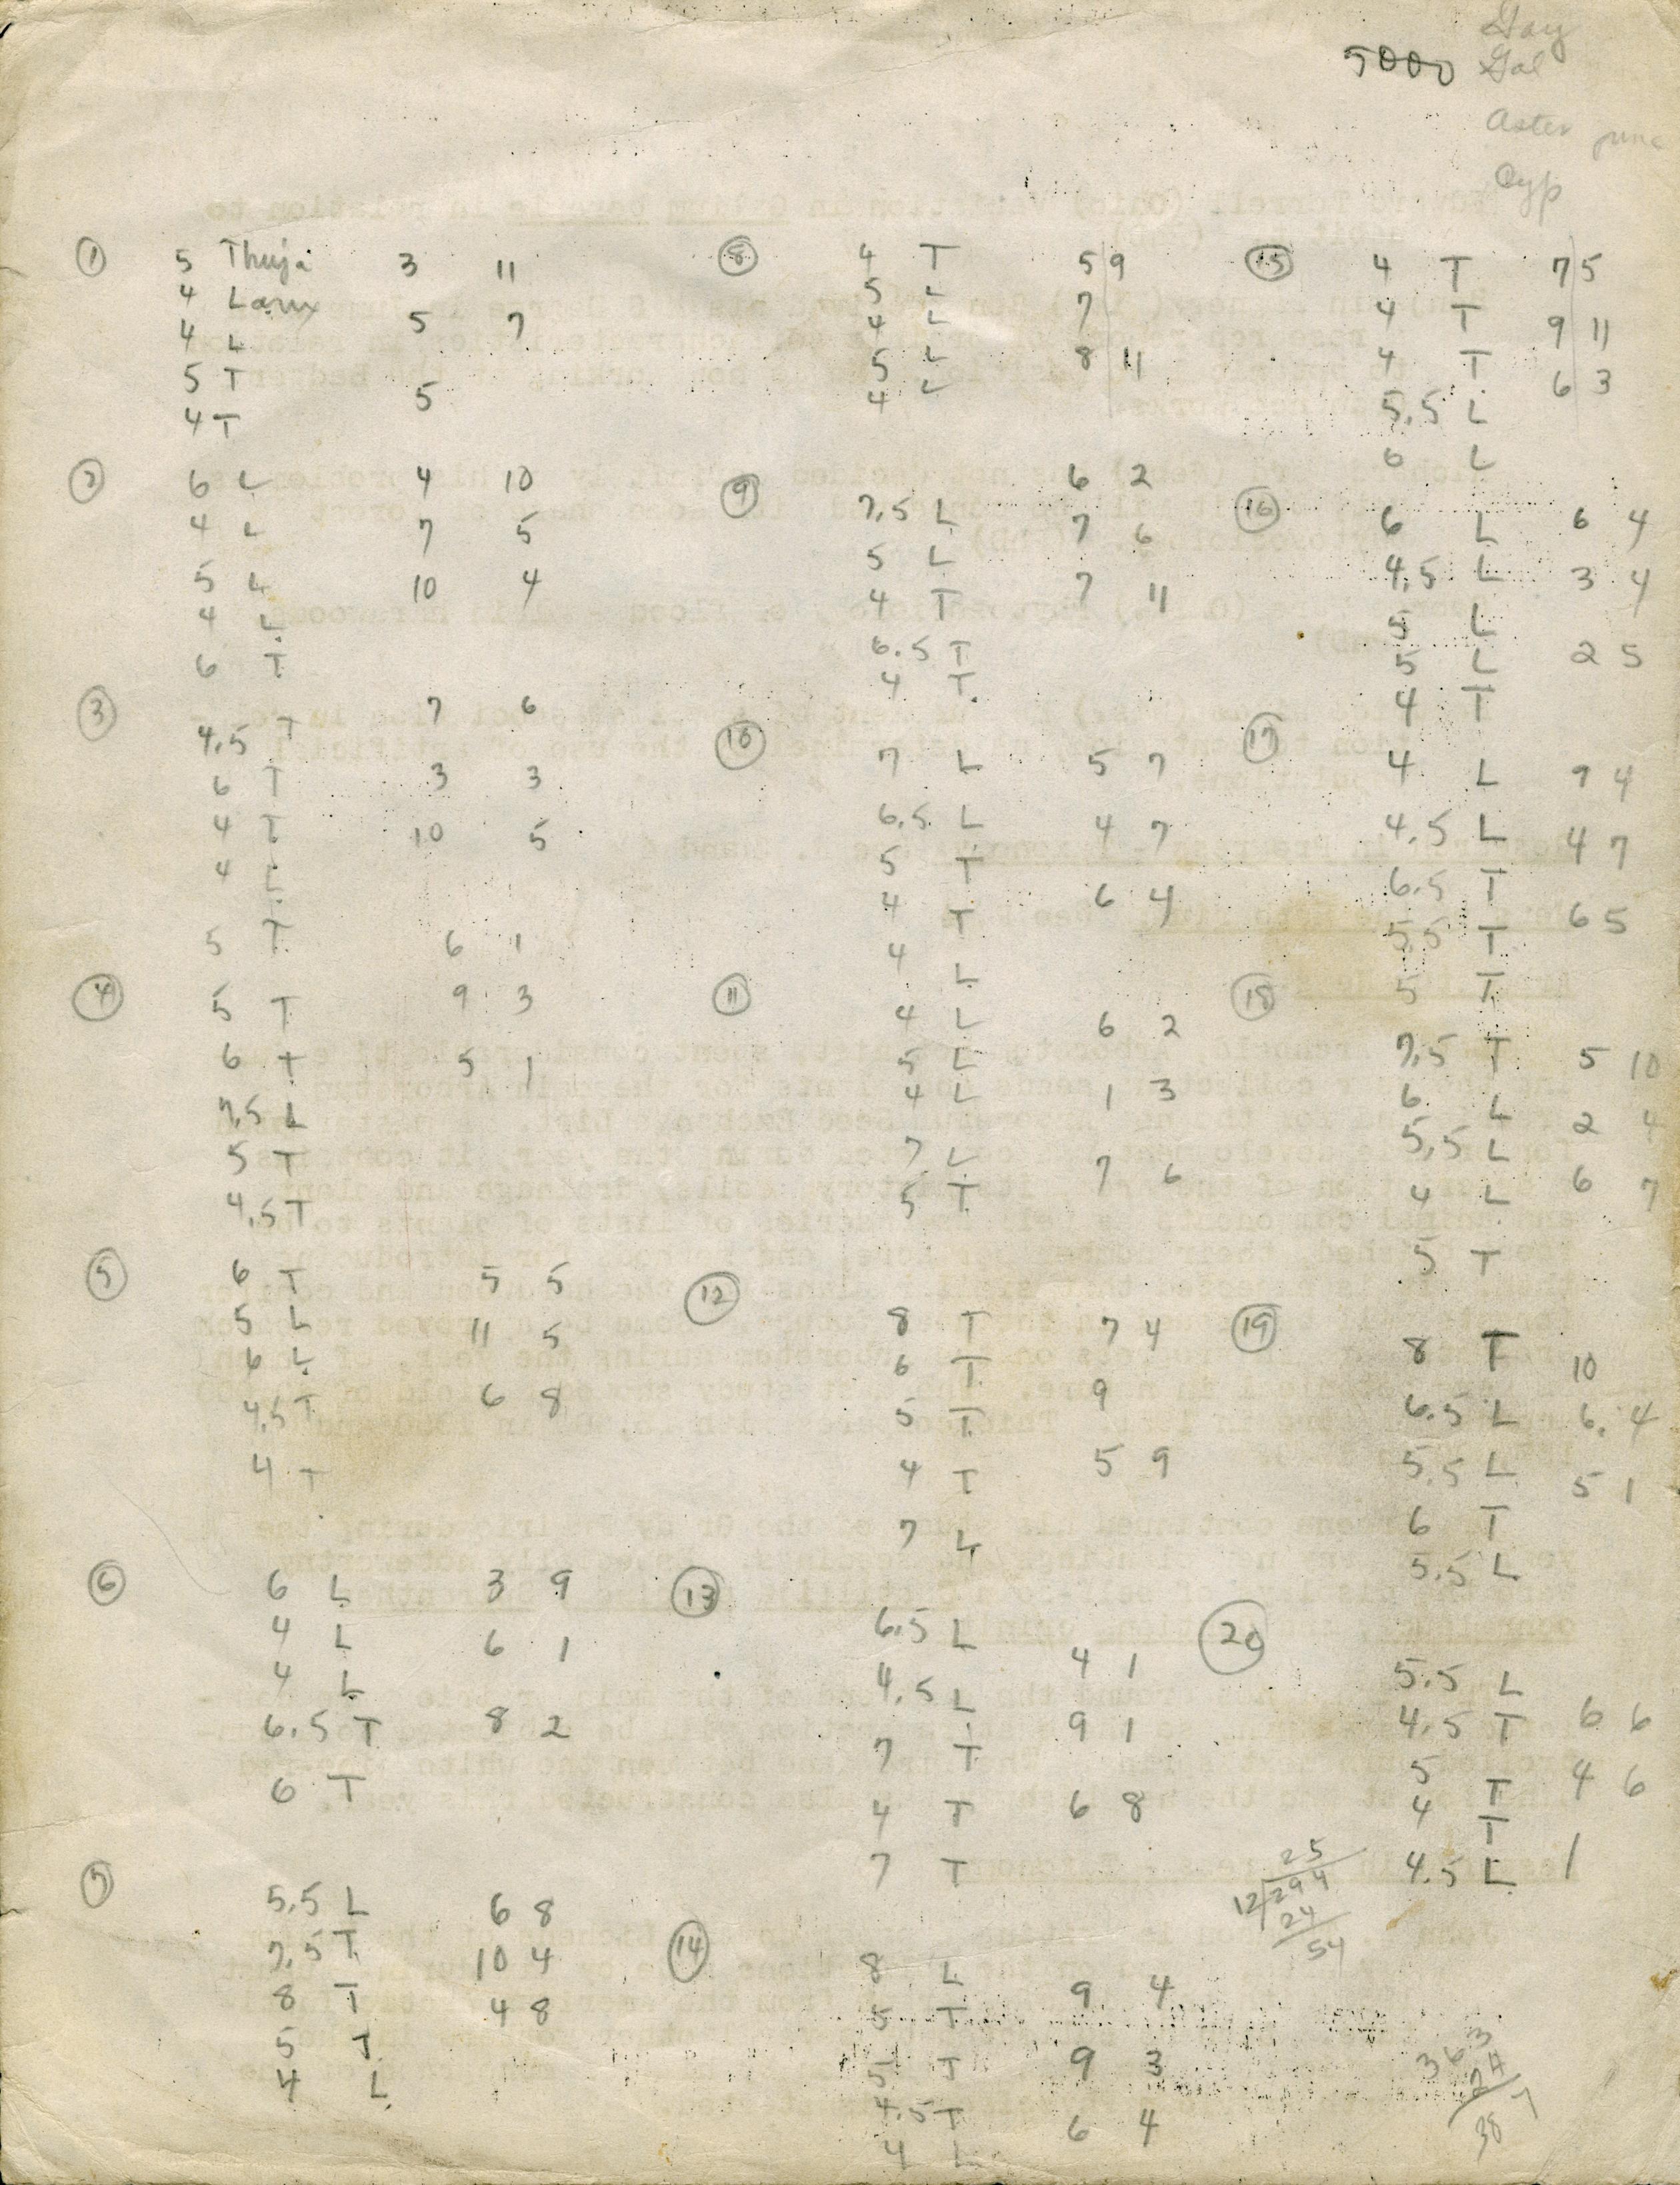 Gay
5000 Gal
Aster junc
Cyp
① 5 Thuja 3 11
4 Larix 5 7
4 L
5 T 5
4 T
② 6 L 4 10
4 L 7 5
5 L 10 4
4 L
6 T
③ 4.5 T 7 6
6 T 3 3
4 T 10 5
4 L
5 T 6 1
④ 5 T 9 3
6 T 5 1
7.5 L
5 T
4.5 T
⑤ 6 T 5 5
5 L 11 5
6 L
4.5 T 6 8
4 T
⑥ 6 L 3 9
4 L 6 1
4 L
6.5 T 8 2
6 T
⑦ 5.5 L 6 8
7.5 T 10 4
8 T 4 8
5 T
4 L
⑧ 4 T 5 9
5 L 7
4 L
5 L 8 11
4 L
⑨ 6 2
7.5 L 7 6
5 L
4 T 7 11
6.5 T
4 T
⑩ 7 L 5 7
6.5 L 4 7
5 T
4 T 6 4
4 L
⑪ 4 L 6 2
5 L
4 L 1 3
7 L
5 T 7 6
⑫ 8 T 7 4
6 T
5 T 9
4 T 5 9
7 L
⑬ 6.5 L
4.5 L 4 1
7 T 9 1
4 T 6 8
7 T
⑭ 8 L 9 4
5 T
5 T 9 3
4.5 T
4 L 6 4
⑮ 4 T 7 5
4 T 9 11
4 T 6 3
5.5 L
6 L
⑯ 6 L 6 4
4.5 L 3 4
5 L
5 L 2 5
4 T
⑰ 4 L 9 4
4.5 L 4 7
6.5 T
5.5 T 6 5
5 T
⑱ 7.5 T 5 10
6 L 2 4
5.5 L
4 L 6 7
5 T
⑲ 8 T 10
6.5 L 6. 4
5.5 L 5 1
6 T
5.5 L
⑳ 5.5 L
4.5 T 6 6
5 T 4 6
4 T
4.5 L 1
25
12)294
24
54
363
24
38